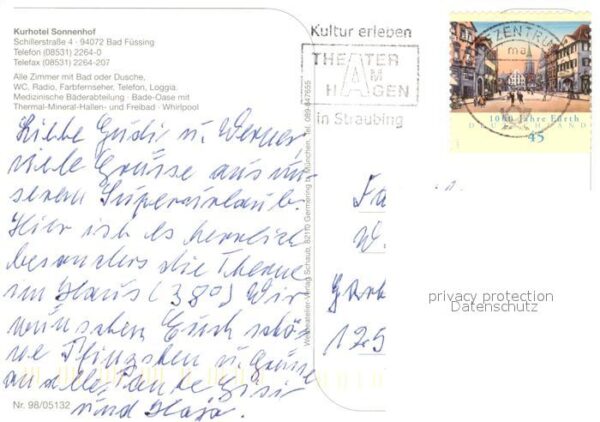 Kurhotel Sonnenhof
Schillerstraße 4 - 94072 Bad Füssing
Telefon (08531) 2264-0
Telefax (08531) 2264-207
Alle Zimmer mit Bad oder Dusche,
WC, Radio, Farbfernseher, Telefon, Loggia.
Medizinische Bäderabteilung · Bade-Oase mit
Thermal-Mineral-Hallen- und Freibad · Whirlpool
Liebe Gudi u. Werner
viele Grüsse aus un-
serem Superurlaub.
Hier ist es herrlich
besonders die Therme
im Haus (38°) Wir
wünschen Euch schö-
ne Pfingsten u. Grüsse
an alle
und
Nr. 98/05132
Schaub, 82110 Germering
München, Tel. 089/847655
Kultur erleben
THEATER
AM
HAGEN
in Straubing
ZENTRUM
1000 Jahre Fürth
DEUTSCHLAND
45
Fa
W.
125
privacy protection
Datenschutz